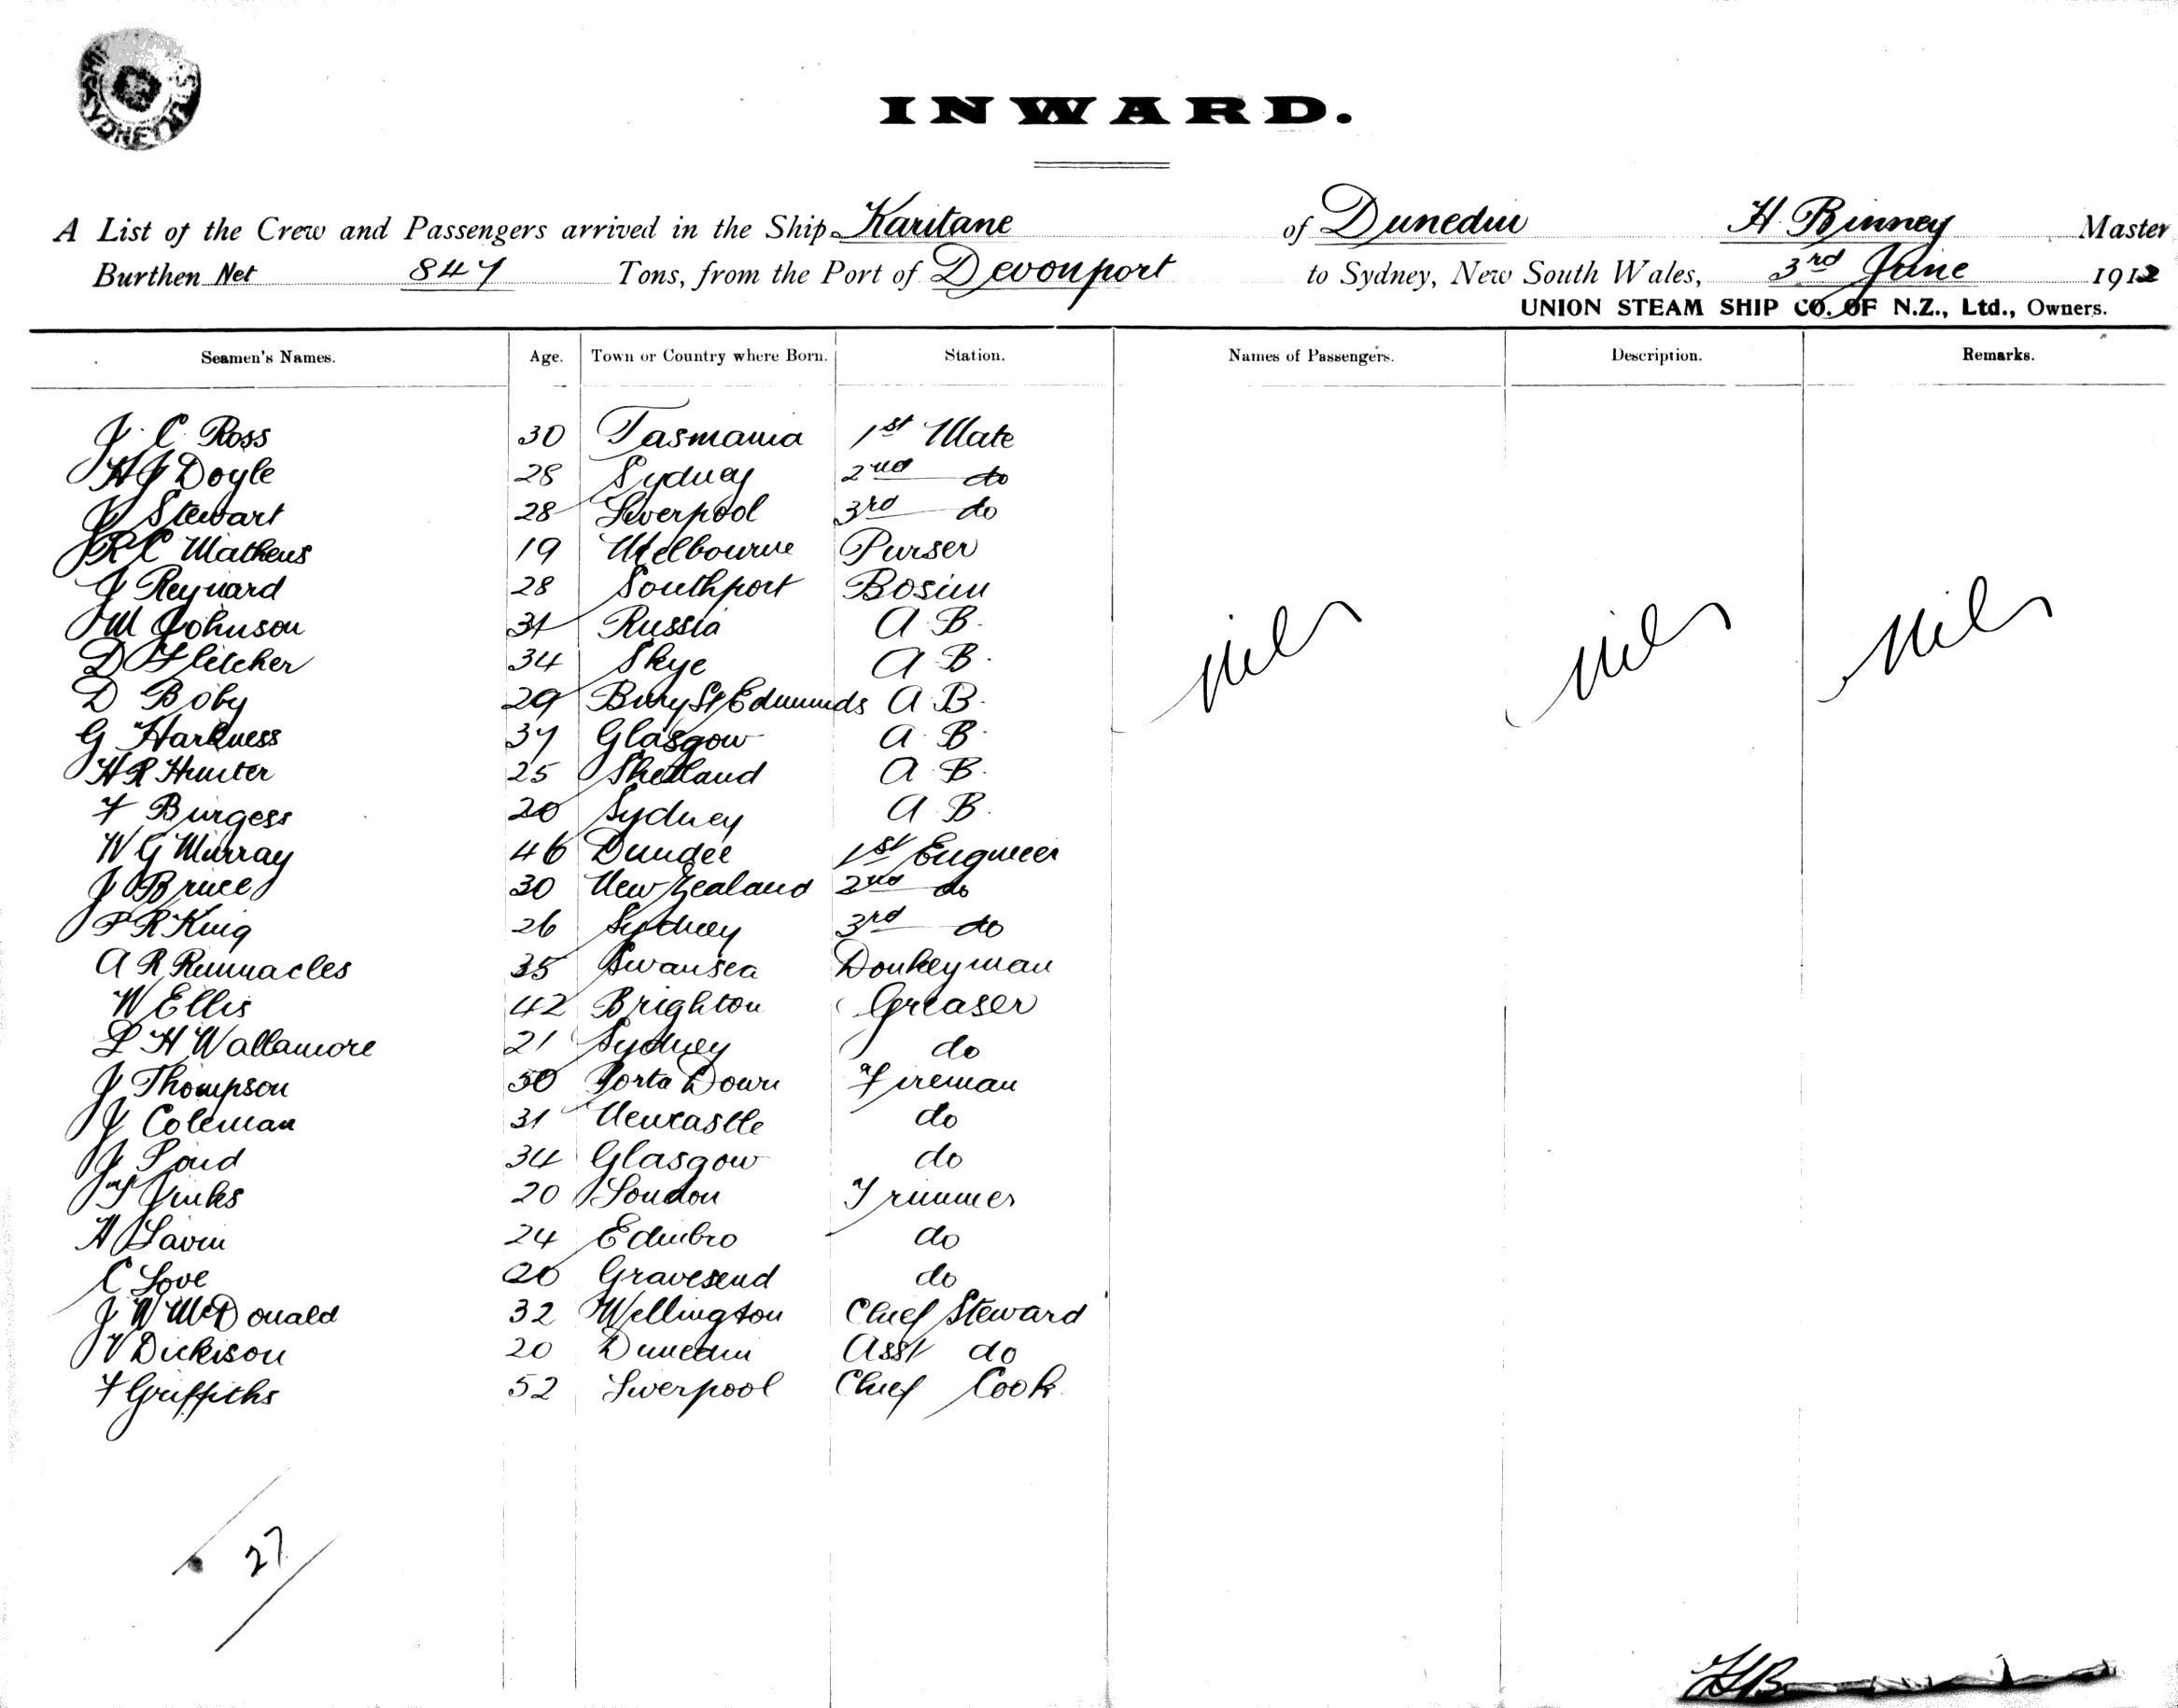 SYDNEY
INWARD.
A List of the Crew and Passengers arrived in the Ship Karitane of Dunedin H. Binney Master
Burthen Net 847 Tons, from the Port of Devonport to Sydney, New South Wales, 3rd June 1912
UNION STEAM SHIP CO. OF N.Z., Ltd., Owners.
Seamen's Names. Age. Town or Country where Born. Station. Names of Passengers. Description. Remarks.
J. C. Ross 30 Tasmania 1st Mate
H J Doyle 28 Sydney 2nd do
J Stewart 28 Liverpool 3rd do
R C Mathews 19 Melbourne Purser
J Reynard 28 Southport Bosun
M Johnson 31 Russia A. B.
D Fletcher 34 Skye A B.
D Boby 29 Bury St Edmunds A. B.
G Harkness 37 Glasgow A. B.
H R Hunter 25 Shetland A. B.
F Burgess 20 Sydney A B.
W G Murray 46 Dundee 1st Engineer
J Bruce 30 New Zealand 2nd do
P R King 26 Sydney 3rd do
A R Runnacles 35 Swansea Donkeyman
W Ellis 42 Brighton Greaser
L H Wallamore 21 Sydney do
J Thompson 50 Porta Down Fireman
J Coleman 31 Newcastle do
J 34 Glasgow do
Jinks 20 London Trimmer
H Lavin 24 Edinbro do
C Love 20 Gravesend do
J W McDonald 32 Wellington Chief Steward
V Dickison 20 Dunedin Asst do
F Griffiths 52 Liverpool Chief Cook
Nil Nil Nil
27